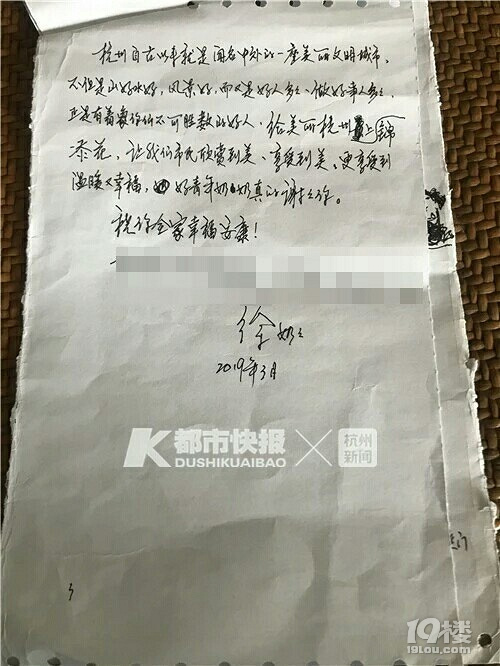 杭州自古以来就是闻名中外的一座美丽文明城市。
不但是山好水好，风景好，而又是好人多、做好事人多，
正是有着象你们不可胜数的好人，给美丽杭州上锦
添花，让我们市民欣赏到美、享受到美、更享受到
温暖又幸福，好青年奶奶真的谢谢你。
祝你全家幸福安康！
徐奶奶
2019年3月
都市快报
DUSHIKUAIBAO
杭州
新闻
3
19楼
19lou.com